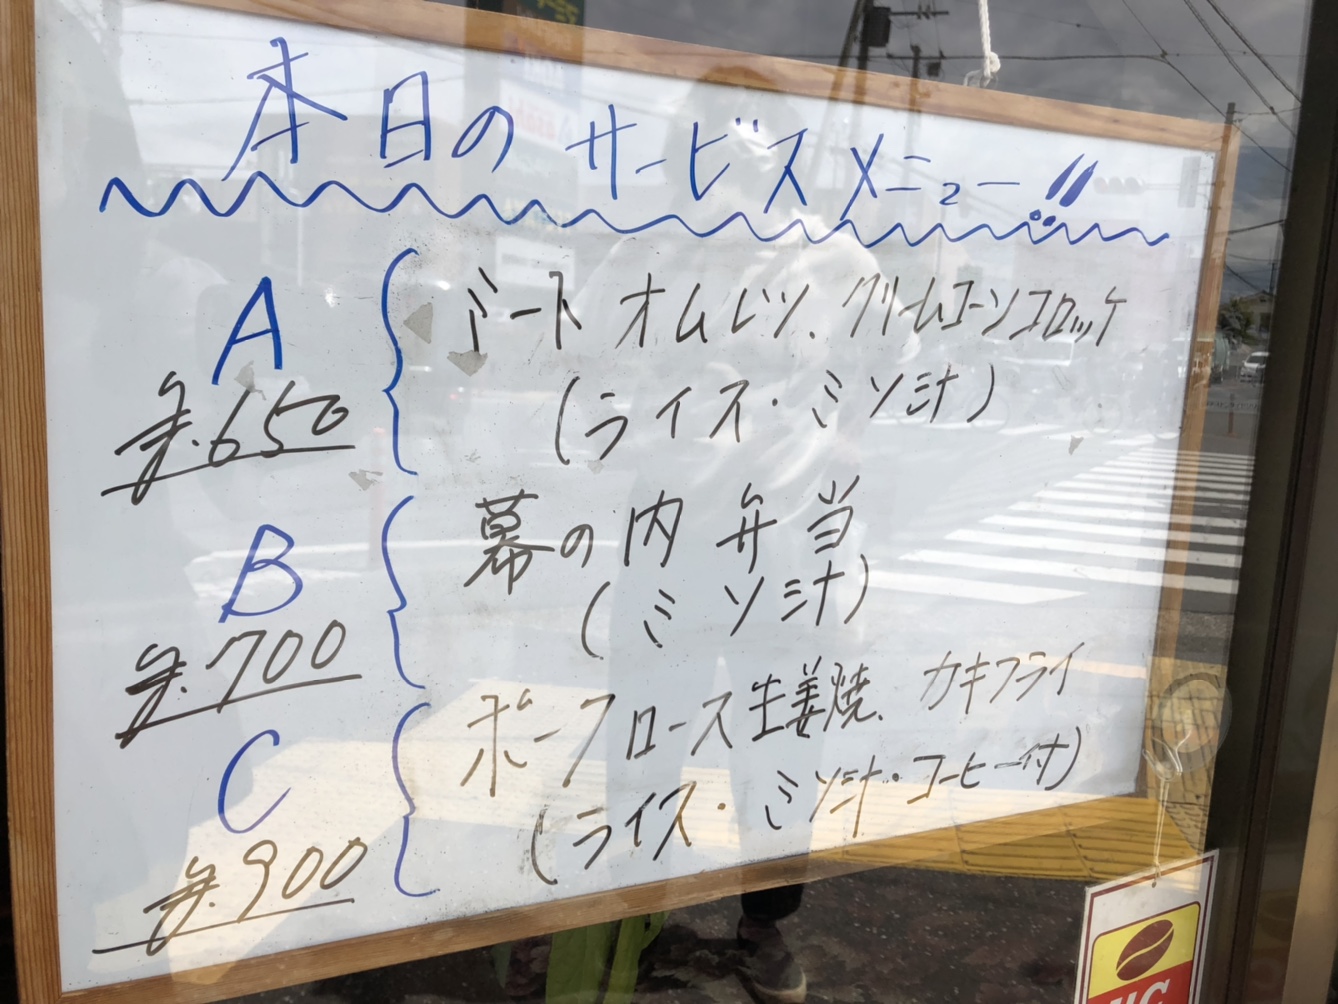 本日のサービスメニュー!!
A
¥.650
ミートオムレツ、クリームコーンコロッケ
(ライス・ミソ汁)
B
¥.700
幕の内弁当
(ミソ汁)
C
¥.900
ポークロース生姜焼、カキフライ
(ライス・ミソ汁・コーヒー付)